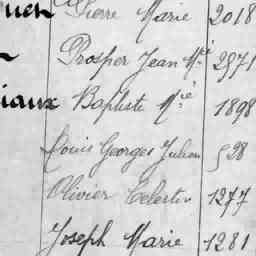 Pierre Marie 2018
Prosper Jean Mie 2971
iaux Baptiste Mie 1898
Louis Georges Julien 528
Olivier Celestin 1277
Joseph Marie 1281